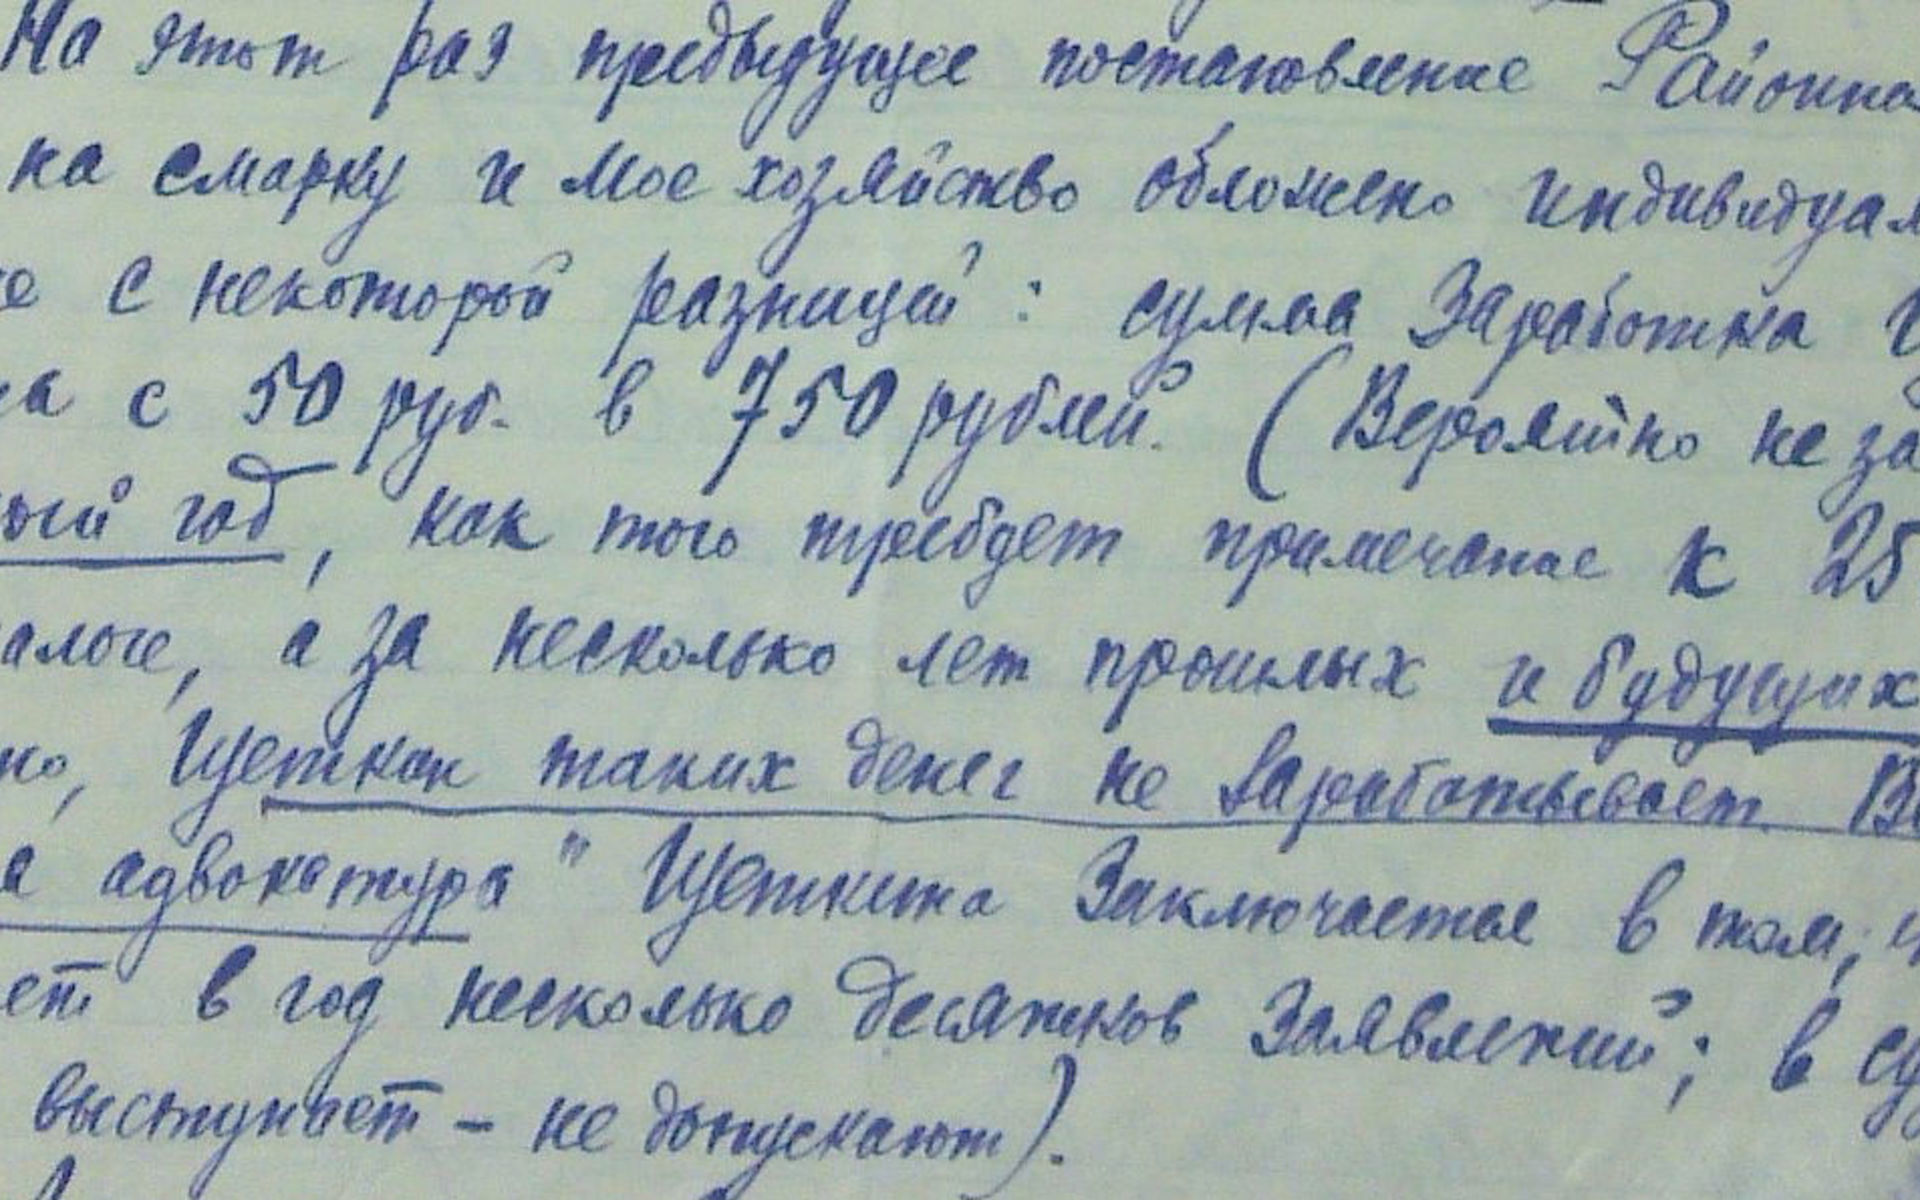 На этот раз предыдущее постановление Районна
на смарку и мое хозяйство обложено индивидуал
е с некоторой разницей: сумма Заработка
на с 50 руб. в 750 рублей. (Вероятно не за
ный год, как того требует примечание к 25
алоге, а за несколько лет прошлых и будущих
но, Щеткин таких денег не Зарабатывает Ве
а адвокатура" Щеткина Заключается в том, ч
ет в год несколько десятков Заявлений; в су
выступает - не допускают).